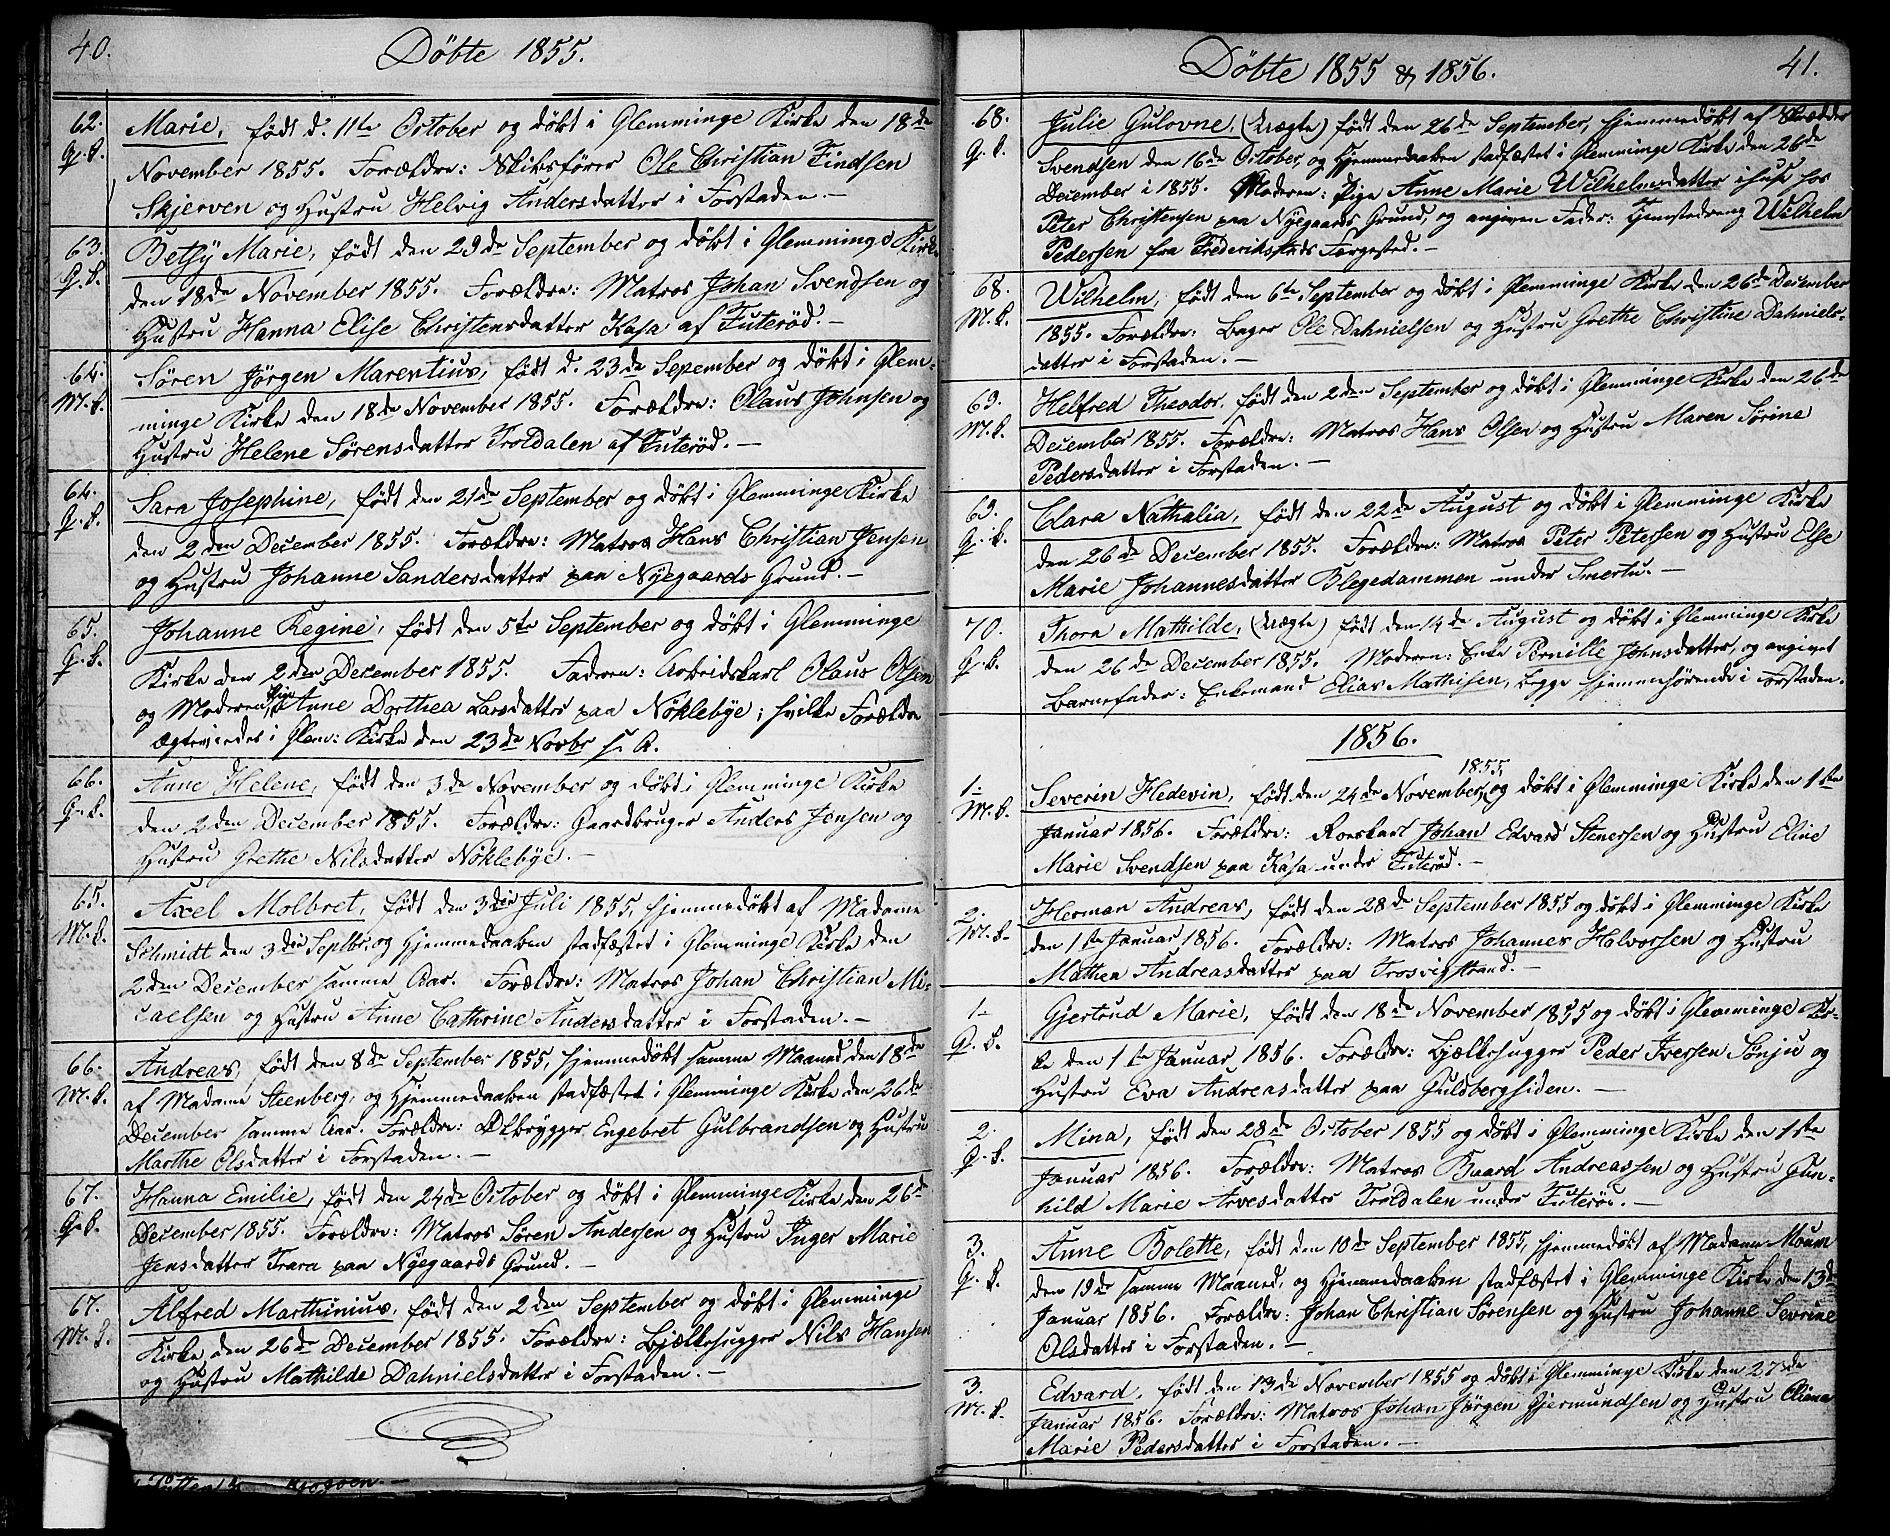 40.
Döbte 1855.
62.
Q.K.
Marie, født d. 11te October og døbt i Glemminge Kirke den 18de
November 1855. Forældre: Skibsfører Ole Christian Findsen
Skjerven og Hustru Helvig Andersdatter i Forstaden.—
63.
Q.K.
Betsy Marie, født den 29de September og døbt i Glemminge Kirke
den 18de November 1855. Forældre: Matros Johan Svendsen og
Hustru Hanna Elise Christensdatter Kasa af Futerød.—
64.
M.K.
Søren Jörgen Marentius, født d. 23de Sepember og døbt i Glem-
minge Kirke den 18de November 1855. Forældre: Olaus Johnsen og
Hustru Helene Sörensdatter Troldalen af Futerød.—
64.
Q.K.
Sara Josephine, født den 21de September og døbt i Glemminge Kirke
den 2den December 1855. Forældre: Matros Hans Christian Jensen
og Hustru Johanne Sandersdatter paa Nyegaards Grund.—
65.
Q.K.
Johanne Regine, født den 5te September og døbt i Glemminge
Kirke den 2den December 1855. Faderen: Arbeidskarl Olaus Olsen
og Moderen Pige Anne Dorthea Larsdatter paa Nöklebye; hvilke Forældre
Ægteviedes i Glem: Kirke den 23de Novbr s. A.
66.
Q.K.
Anne Helene, født den 3de November og døbt i Glemminge Kirke
den 2den December 1855. Forældre: Gaardbruger Anders Jensen og
Hustru Grethe Nilsdatter Nöklebye.—
65.
M.K.
Axel Molbret, født den 3die Juli 1855, hjemmedøbt af Madame
Schmidt den 3die Septbr, og Hjemmedaaben stadfæstet i Glemminge Kirke den
2den December samme Aar. Forældre: Matros Johan Christian Mi-
caelsen og Hustru Anne Cathrine Andersdatter i Forstaden.—
66.
M.K.
Andreas, født den 8de September 1855, hjemmedøbt samme Maaned den 18de
af Madame Steenberg, og Hjemmedaaben stadfæstet i Glemminge Kirke den 26de
December samme Aar. Forældre: Ølbrygger Engebret Gulbrandsen og Hustru
Marthe Olsdatter i Forstaden.—
67.
Q.K.
Hanna Emilie, født den 24de October og døbt i Glemminge Kirke den 26de
December 1855. Forældre: Matros Sören Andersen og Hustru Inger Marie
Jensdatter Trara paa Nyegaards Grund.—
67.
M.K.
Alfred Marthinius, født den 2den September og døbt i Glemminge
Kirke den 26de December 1855. Forældre: Bjælkehugger Nils Hansen
og Hustru Mathilde Dahnielsdatter i Forstaden.—
Döbte 1855 & 1856.
41.
68.
Q.K.
Julie Gulovne, (Uægte) født den 26de September, hjemmedøbt af Skredder
Svendsen den 16de October, og Hjemmedaaben stadfæstet i Glemminge Kirke den 26de
December i 1855. Moderen: Pige Anne Marie Wilhelmsdatter i huse hos
Peter Christensen paa Nyegaards Grund, og angiven Fader: Tjenestedreng Wilhelm
Pedersen fra Frederiksstads Forgested.—
68.
M.K.
Wilhelm, født den 6te September og døbt i Glemminge Kirke den 26de December
1855. Forældre: Bager Ole Dahnielsen og Hustru Grethe Christine Dahniels-
datter i Forstaden.—
69.
M.K.
Helfred Theodor, født den 2den September og døbt i Glemminge Kirke den 26de
December 1855. Forældre: Matros Hans Olsen og Hustru Maren Sörine
Pedersdatter i Forstaden.—
69.
Q.K.
Clara Nathalia, født den 22de August og døbt i Glemminge Kirke
den 26de December 1855. Forældre: Matros Peter Petersen og Hustru Else
Marie Johannesdatter Blegedammen under Smertu.—
70.
Q.K.
Thora Mathilde, (Uægte) født den 14de August og døbt i Glemminge Kirke
den 26de December 1855. Moderen: Enke Pernille Johnsdatter, og angivet
Barnefader: Enkemand Elias Mathisen, begge hjemmehørende i Forstaden.
1856.
1.
M.K.
Severin Hedevin, født den 24de November 1855, og døbt i Glemminge Kirke den 1ste
Januar 1856. Forældre: Roerskarl Johan Edvard Stenersen og Hustru Eline
Marie Svendsen paa Kasa under Futerød.—
2.
M.K.
Herman Andreas, født den 28de September 1855 og døbt i Glemminge Kirke
den 1ste Januar 1856. Forældre: Matros Johannes Halvorsen og Hustru
Mathea Andreasdatter paa Trosvigstrand.—
1.
Q.K.
Gjertrud Marie, født den 18de November 1855 og døbt i Glemminge Kir-
ke den 1ste Januar 1856. Forældre: Bjælkehugger Peder Iversen Sönju og
Hustru Eva Andreasdatter paa Guldbergsiden.—
2.
Q.K.
Mina, født den 28de October 1855 og døbt i Glemminge Kirke den 1ste
Januar 1856. Forældre: Matros Baard Andreassen og Hustru Gun-
hild Marie Arvesdatter Troldalen under Futerød.—
3.
Q.K.
Anne Bolette, født den 10de September 1855, hjemmedøbt af Madame Moum
den 19de samme Maaned, og Hjemmedaaben stadfæstet i Glemminge Kirke den 13de
Januar 1856. Forældre: Johan Christian Sörensen og Hustru Johanne Severine
Olsdatter i Forstaden.—
3.
M.K.
Edvard, født den 13de November 1855 og døbt i Glemminge Kirke den 27de
Januar 1856. Forældre: Matros Johan Jörgen Gjermundsen og Hustru Oliana
Marie Pedersdatter i Forstaden.—